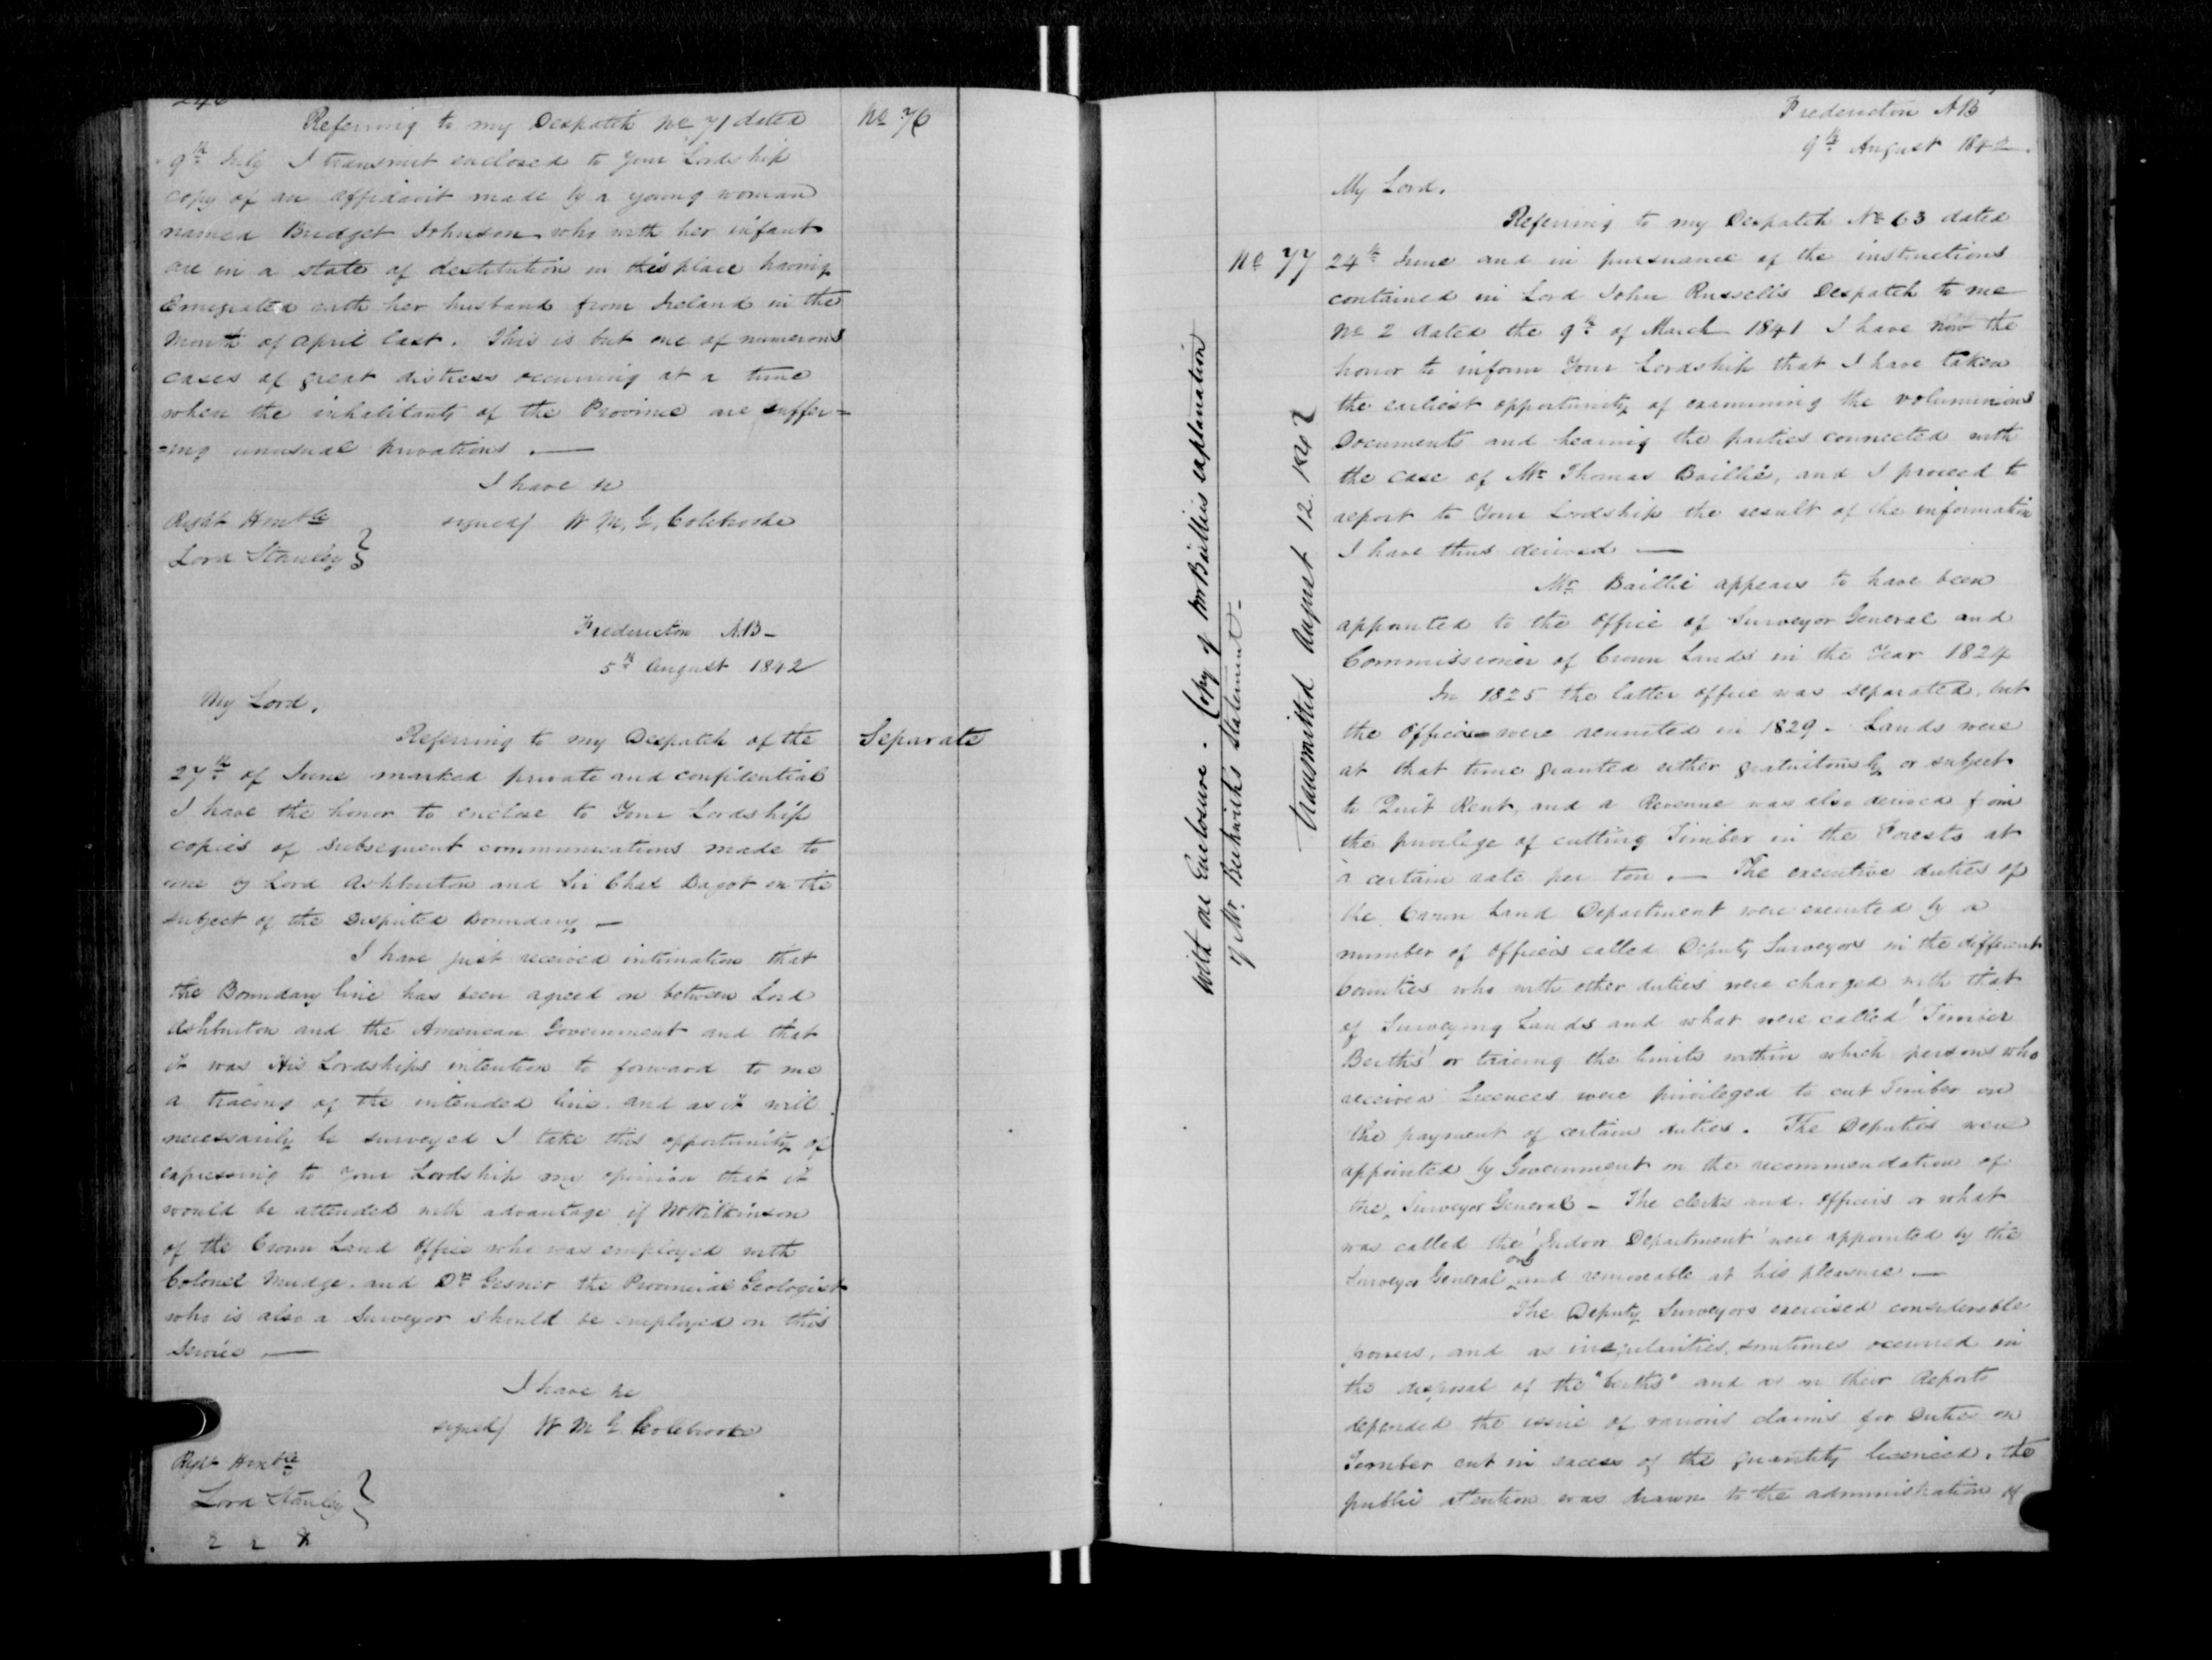 246
Referring to my Despatch No 71 dated
No 76
9th July I transmit enclosed to Your Lordship
copy of an affidavit made by a young woman
named Bridget Johnson who with her infant
are in a state of destitution in this place having
Emigrated with her husband from Ireland in the
Month of April last. This is but one of numerous
cases of great distress occurring at a time
when the inhabitants of the Province are suffer=
=ing unusual privations.
I have &c
Right Honble
signed/ W. M. G. Colebrooke
Lord Stanley
Fredericton N.B-
5th August 1842
My Lord,
Referring to my Despatch of the
Separate
27th of June marked private and confidential
I have the honor to enclose to Your Lordship
copies of subsequent communications made to
me by Lord Ashburton and Sir Chas Bagot on the
subject of the Disputed Boundary -
I have just received intimation that
the Boundary line has been agreed on between Lord
Ashburton and the American Government and that
it was His Lordships intention to forward to me
a tracing of the intended line. and as it will
necessarily be surveyed I take this opportunity of
expressing to Your Lordship my opinion that it
would be attended with advantage if Mr Wilkinson
of the Crown Land Office who was employed with
Colonel Mudge. and Dr Gesner the Provincial Geologist
who is also a Surveyor should be employed on this
Service -
I have &c
signed/ W M G Colebrooke
Right Honble
Lord Stanley
Fredericton NB
9th August 1842.
My Lord.
Referring to my Despatch No 63 dated
No 77
24th June and in pursuance of the instructions
contained in Lord John Russell's Despatch to me
No 2 dated the 9th of March 1841 I have now the
honor to inform Your Lordship that I have taken
the earliest opportunity of examining the voluminous
Documents and hearing the parties connected with
the case of Mr Thomas Baillie, and I proceed to
report to Your Lordship the result of the information
I have thus derived -
Mr Baillie appears to have been
appointed to the Office of Surveyor General and
Commissioner of Crown Lands in the Year 1824
In 1825 the latter office was separated, but
the Offices were reunited in 1829 - Lands were
at that time granted either gratuitously or subject
to Quit Rent, and a Revenue was also derived from
the privilege of cutting Timber in the Forests at
a certain rate per ton. - The executive duties of
the Crown Land Department were executed by a
number of Officers called Deputy Surveyors in the different
Counties who with other duties were charged with that
of Surveying Lands and what were called 'Timber
Berths' or tracing the limits within which persons who
received Licences were privileged to cut Timber on
the payment of certain duties. The Deputies were
appointed by Government on the recommendation of
the Surveyor General - The clerks and Officers or what
was called the 'Indoor Department' were appointed by the
Surveyor General only and removeable at his pleasure -
The Deputy Surveyors exercised considerable
powers, and as irregularities, sometimes occurred in
the disposal of the "berths" and as on their Reports
depended the issue of various claims for Duties on
Timber cut in excess of the quantity licenced. the
public attention was drawn to the administration of
With an Enclosure. Copy of Mr Baillies explanation
of Mr Beckwiths Statement -
Transmitted August 12. 1842